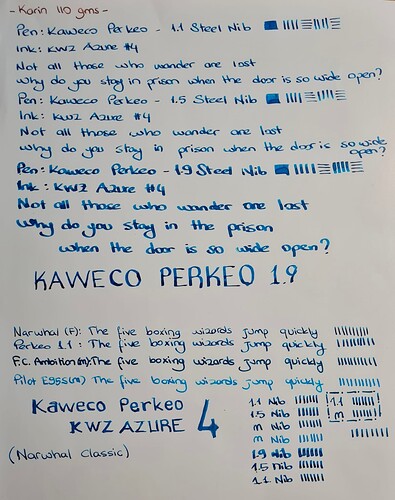 - Karin 110 gms -
Pen: Kaweco Perkeo - 1.1 Steel Nib
Ink: KWZ Azure #4
Not all those who wander are lost
Why do you stay in prison when the door is so wide open?
Pen: Kaweco Perkeo - 1.5 Steel Nib
Ink: KWZ Azure #4
Not all those who wander are lost
Why do you stay in prison when the door is so wide open?
Pen: Kaweco Perkeo - 1.9 Steel Nib
Ink: KWZ Azure #4
Not all those who wander are lost
Why do you stay in the prison
when the door is so wide open?
KAWECO PERKEO 1.9
Narwhal (F): The five boxing wizards jump quickly
Perkeo 1.1: The five boxing wizards jump quickly
F.C. Ambition (m): The five boxing wizards jump quickly
Pilot E95s (m): The five boxing wizards jump quickly
Kaweco Perkeo
KWZ AZURE 4
(Narwhal Classic)
1.1 Nib
1.5 Nib
m Nib
m Nib
1.9 Nib
1.5 Nib
1.1 Nib
1.1
m